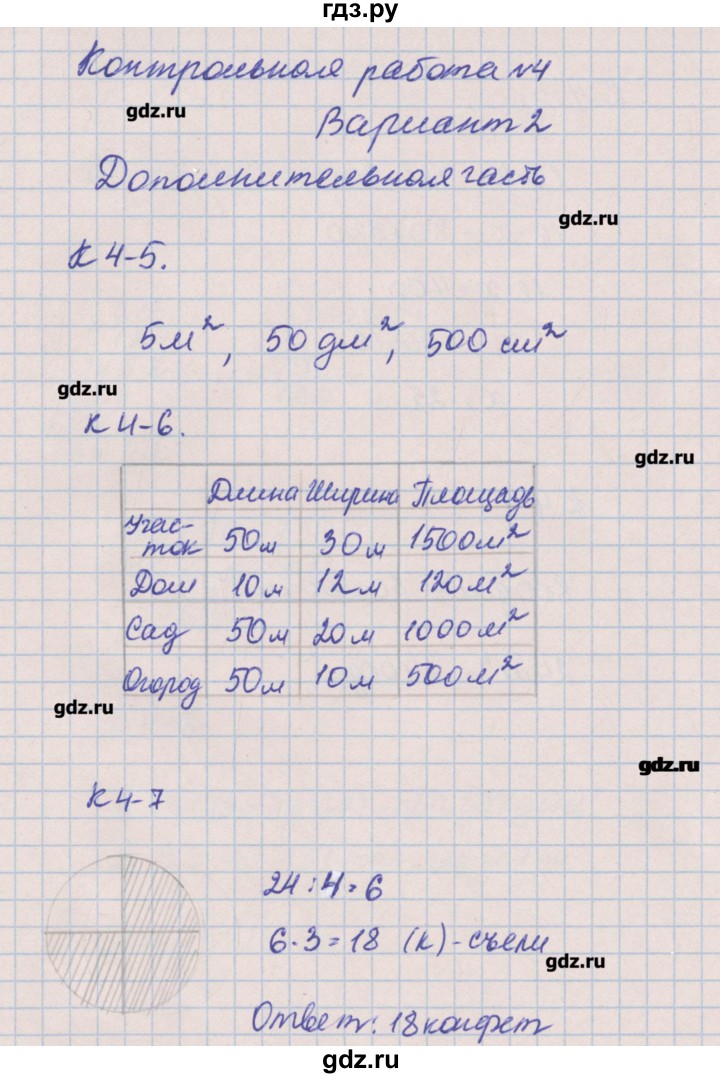 гдз.ру
Контрольная работа №4
gdz.ru
Вариант 2
Дополнительная часть
gdz.ru
К 4-5.
5м², 50 дм², 500 см²
gdz.ru
К 4-6.
gdz.ru
Длина Ширина Площадь
Учас-
ток 50м 30м 1500м²
Дом 10м 12м 120м²
Сад 50м 20м 1000м²
Огород 50м 10м 500м²
gdz.ru
gdz.ru
К 4-7
24:4=6
6·3=18 (к)-съели
gdz.ru
Ответ: 18 конфет
gdz.ru